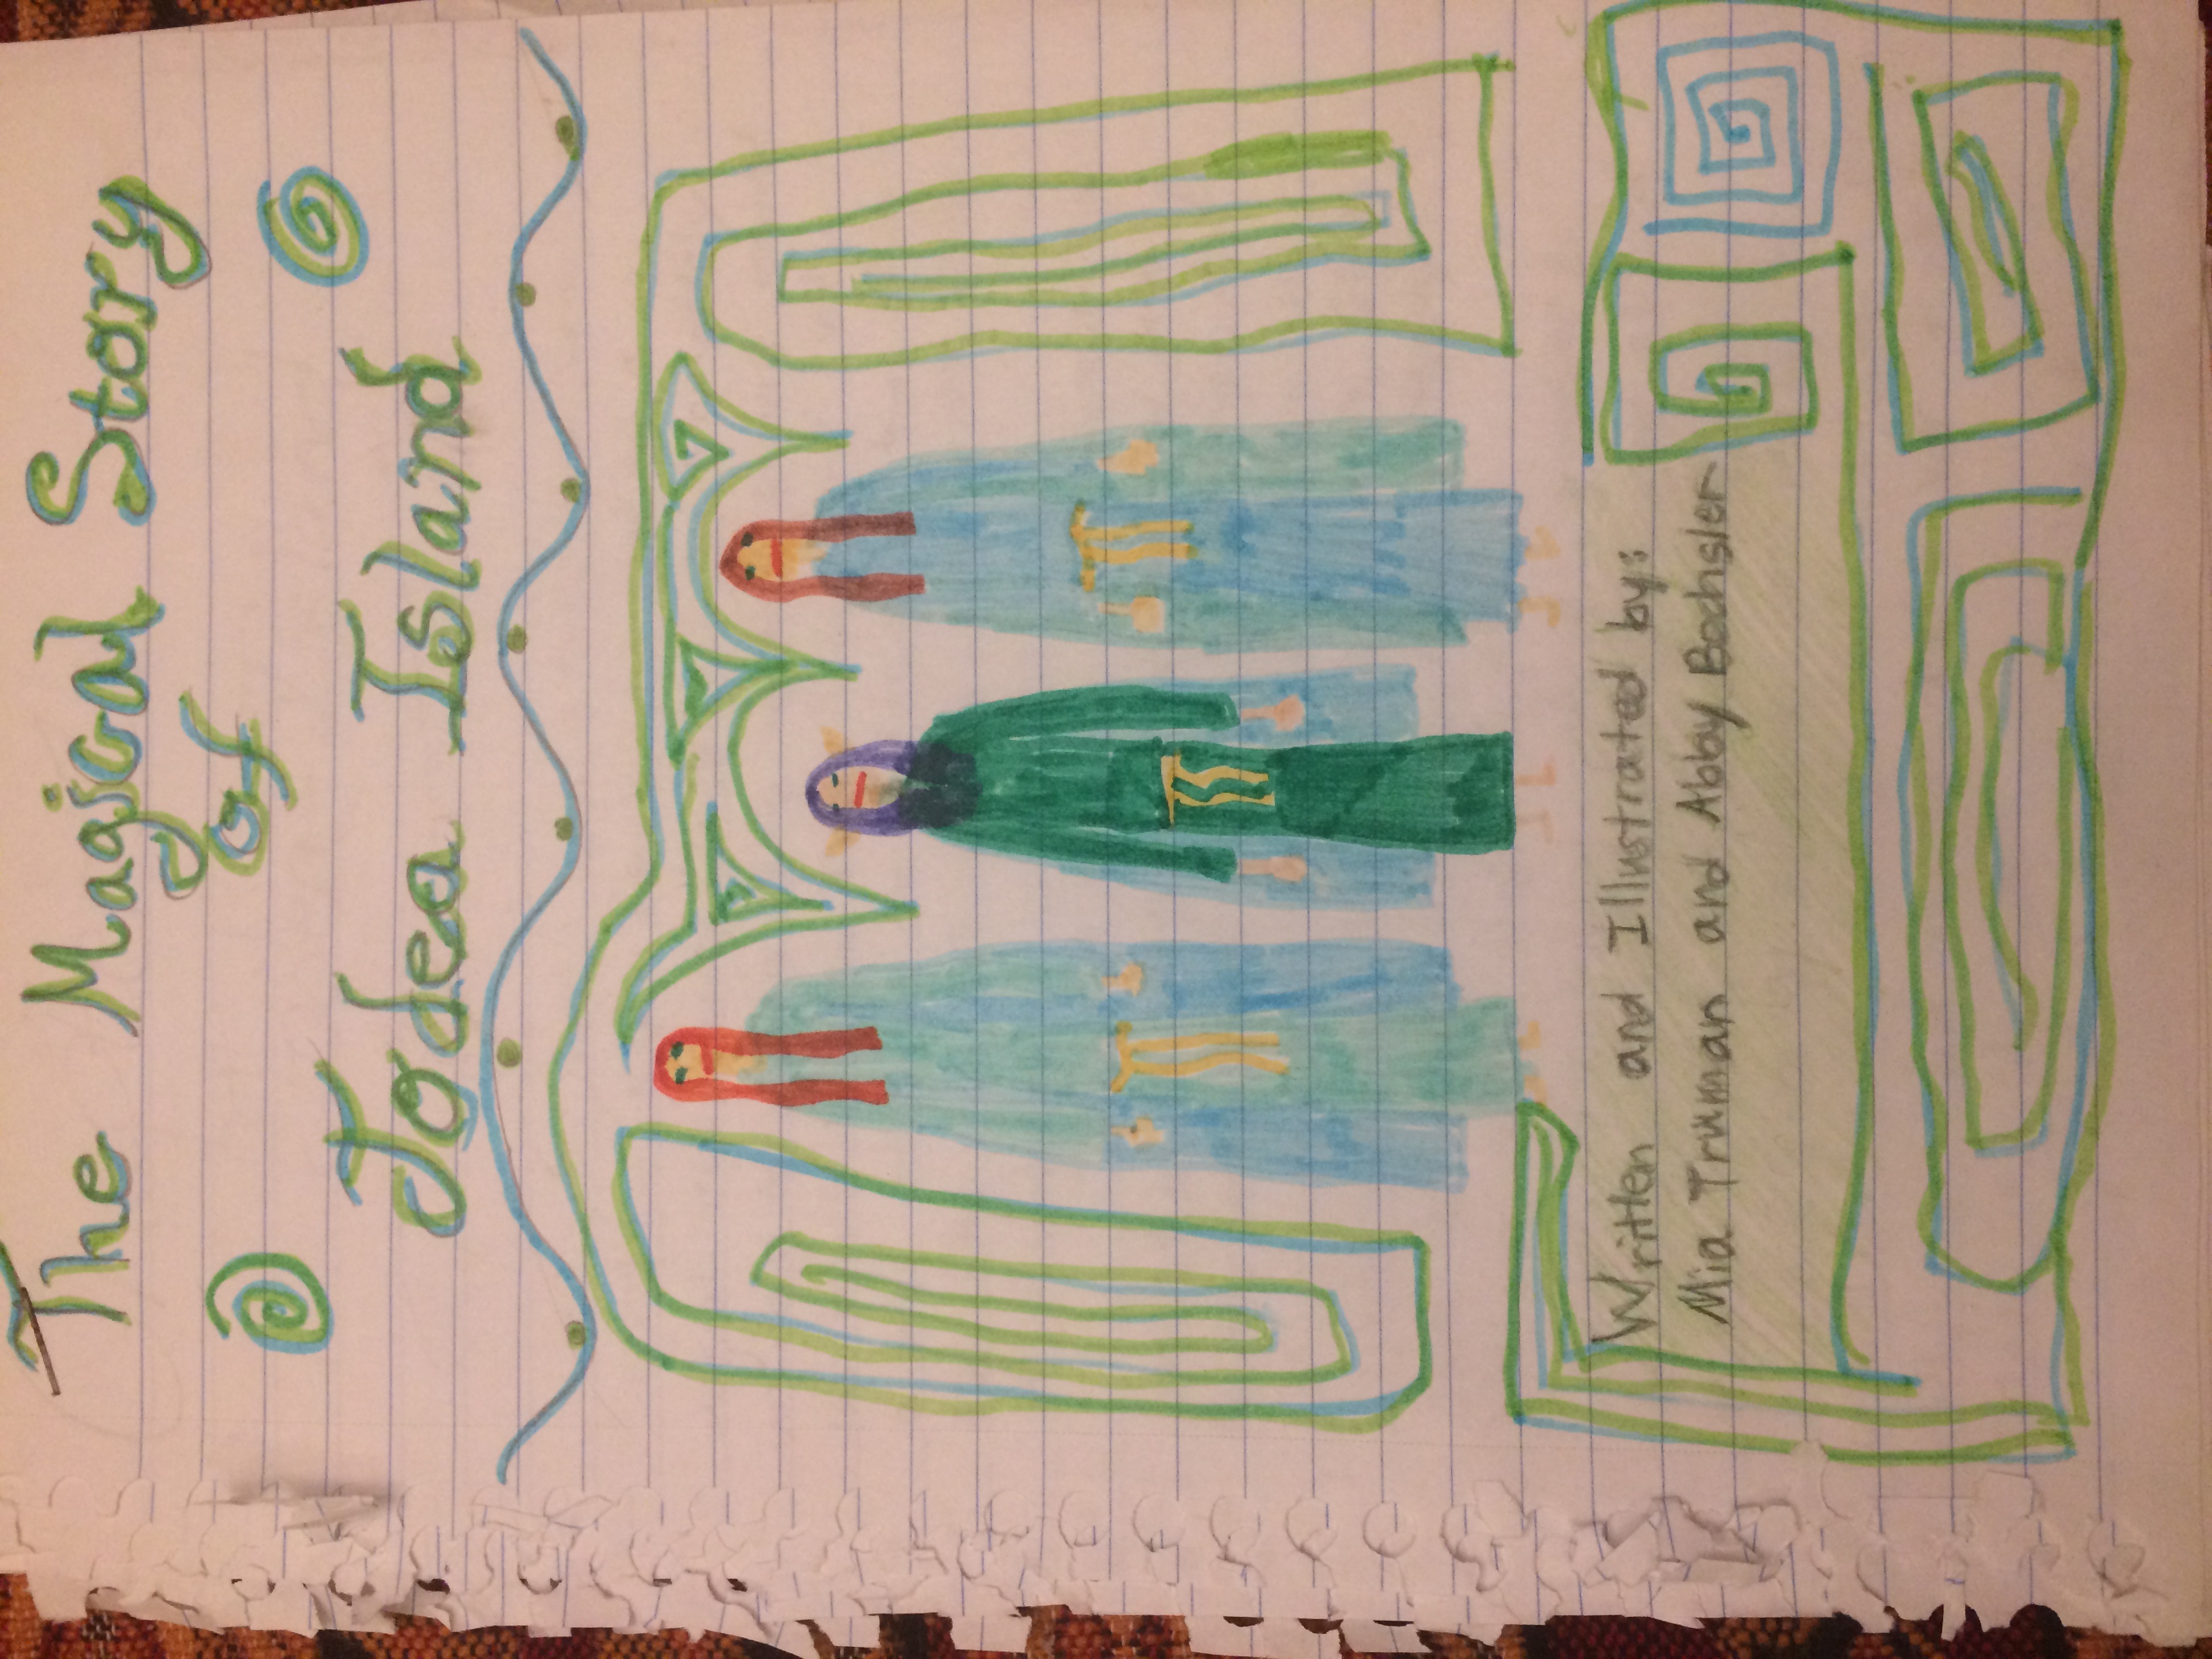 The Magical Story
of
Jodea Island
Written and Illustrated by:
Mia Truman and Abby Bochsler